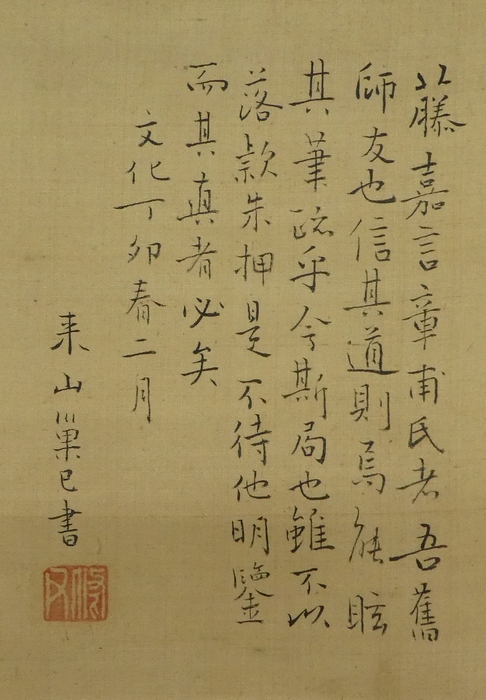 藤嘉言章甫氏者吾舊
師友也信其道則焉能眩
其筆蹤乎今斯局也雖不以
落款朱押是不待他明鑒
而其真者必矣
文化丁卯春二月
来山巣已書